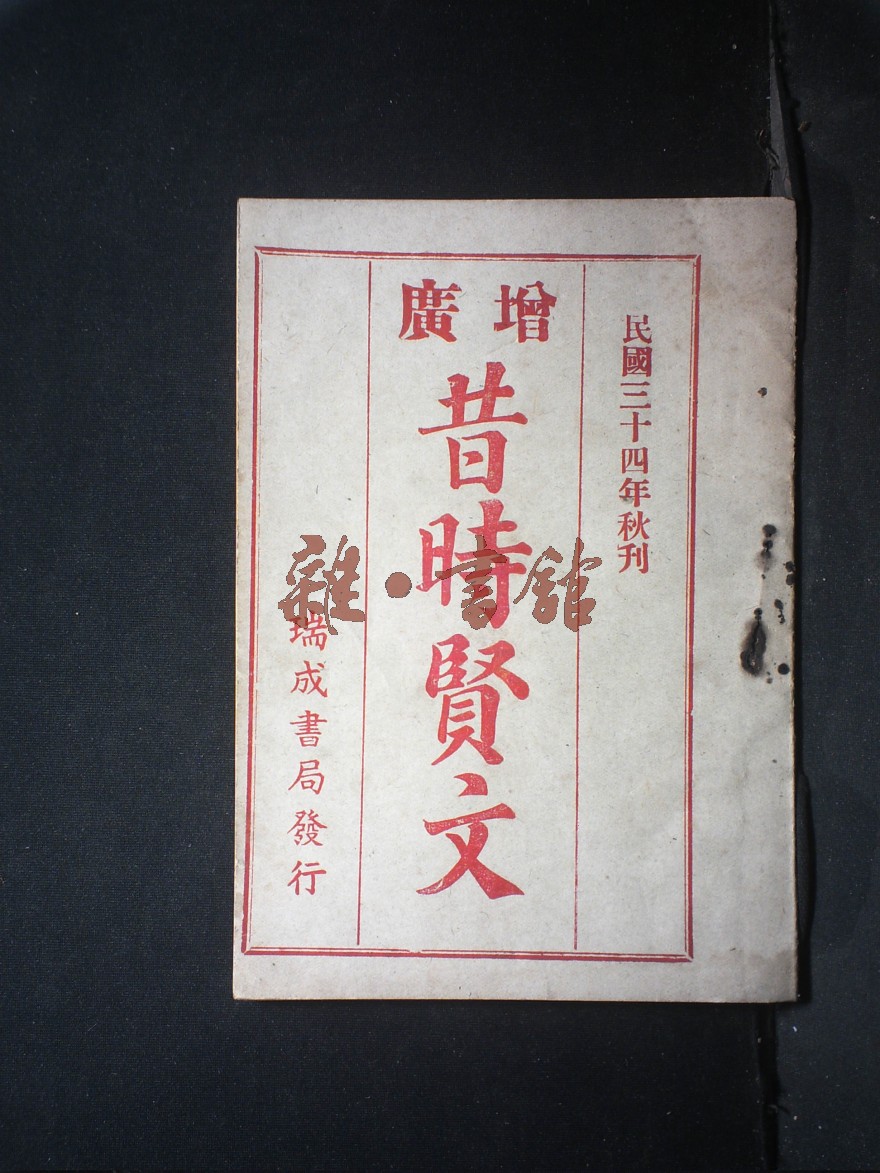 民國三十四年秋刊
增廣
昔時賢文
瑞成書局發行
雜·書館